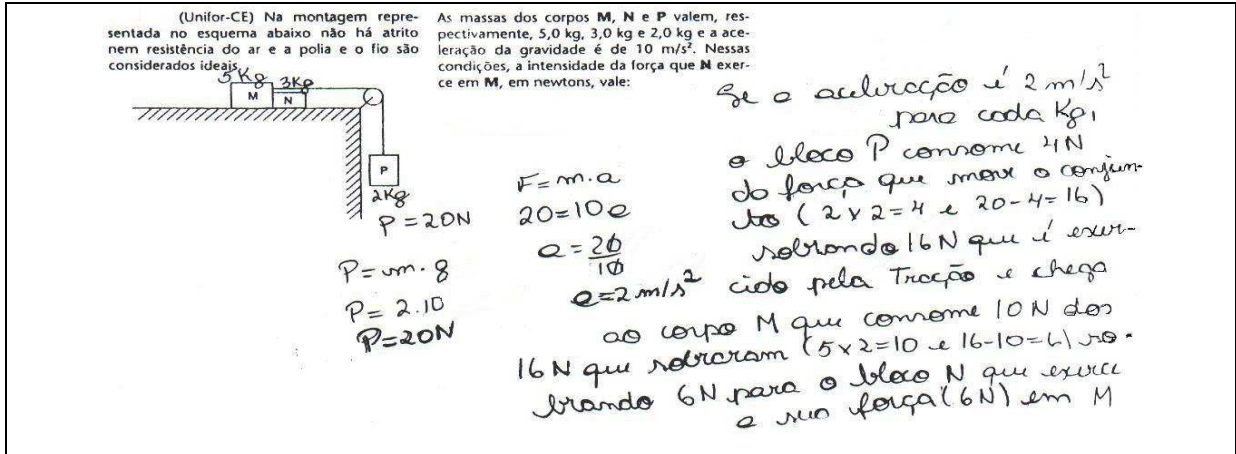 (Unifor-CE) Na montagem repre-
sentada no esquema abaixo não há atrito
nem resistência do ar e a polia e o fio são
considerados ideais.
As massas dos corpos M, N e P valem, res-
pectivamente, 5,0 kg, 3,0 kg e 2,0 kg e a ace-
leração da gravidade é de 10 m/s². Nessas
condições, a intensidade da força que N exer-
ce em M, em newtons, vale:
5Kg
3Kg
M
N
P
2Kg
P = 20N
P = m. g
P = 2.10
P=20N
F = m.a
20=10a
a = 20/10
a=2 m/s²
Se a aceleração é 2 m/s²
para cada Kg,
o bloco P consome 4N
da força que move o conjun-
to (2 x 2 = 4 e 20-4=16)
sobrando 16N que é exer-
cido pela Tração e chega
ao corpo M que consome 10N dos
16N que sobraram (5x2=10 e 16-10=6) so-
brando 6N para o bloco N que exerce
a sua força (6N) em M